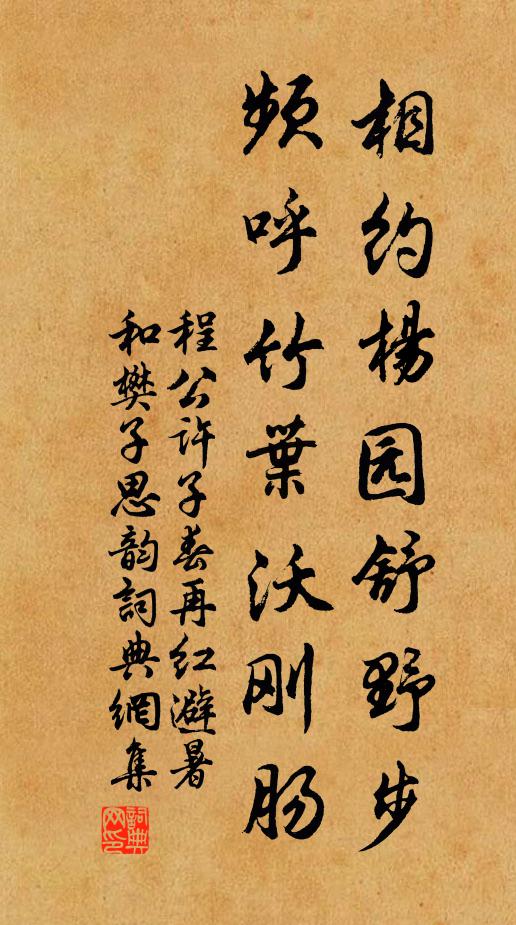 相约杨园舒野步
频呼竹葉沃刚肠
程公许子春再红避暑
和樊子思韵詞典網集
詞典网印